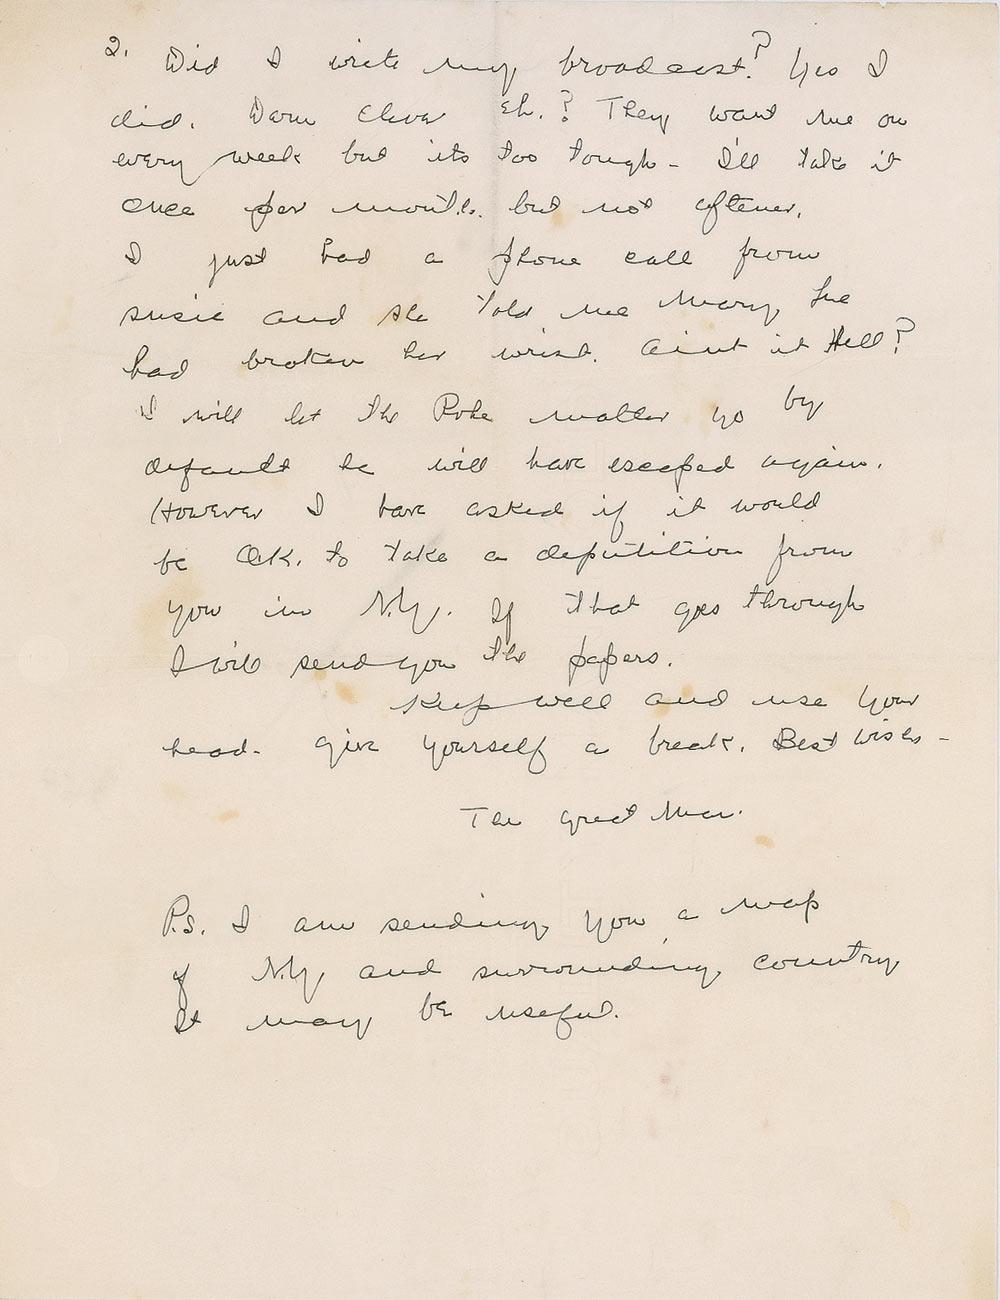 2. Did I write my broadcast? Yes I
did. Darn Clever Eh.? They want me on
every week but its too tough - I'll take it
once per month. but not oftener.
I just had a phone call from
susie and she told me Mary Lue
had broken her wrist. Aint it Hell?
I will let the matter go by
default he will have escaped again.
However I have asked if it would
be O.K. to take a deputition from
you in N.Y. If that goes through
I will send you the papers.
Keep well and use your
head - give yourself a break. Best wishes -
The Great Man.
P.S. I am sending you a map
of N.Y. and surrounding country
It may be useful.